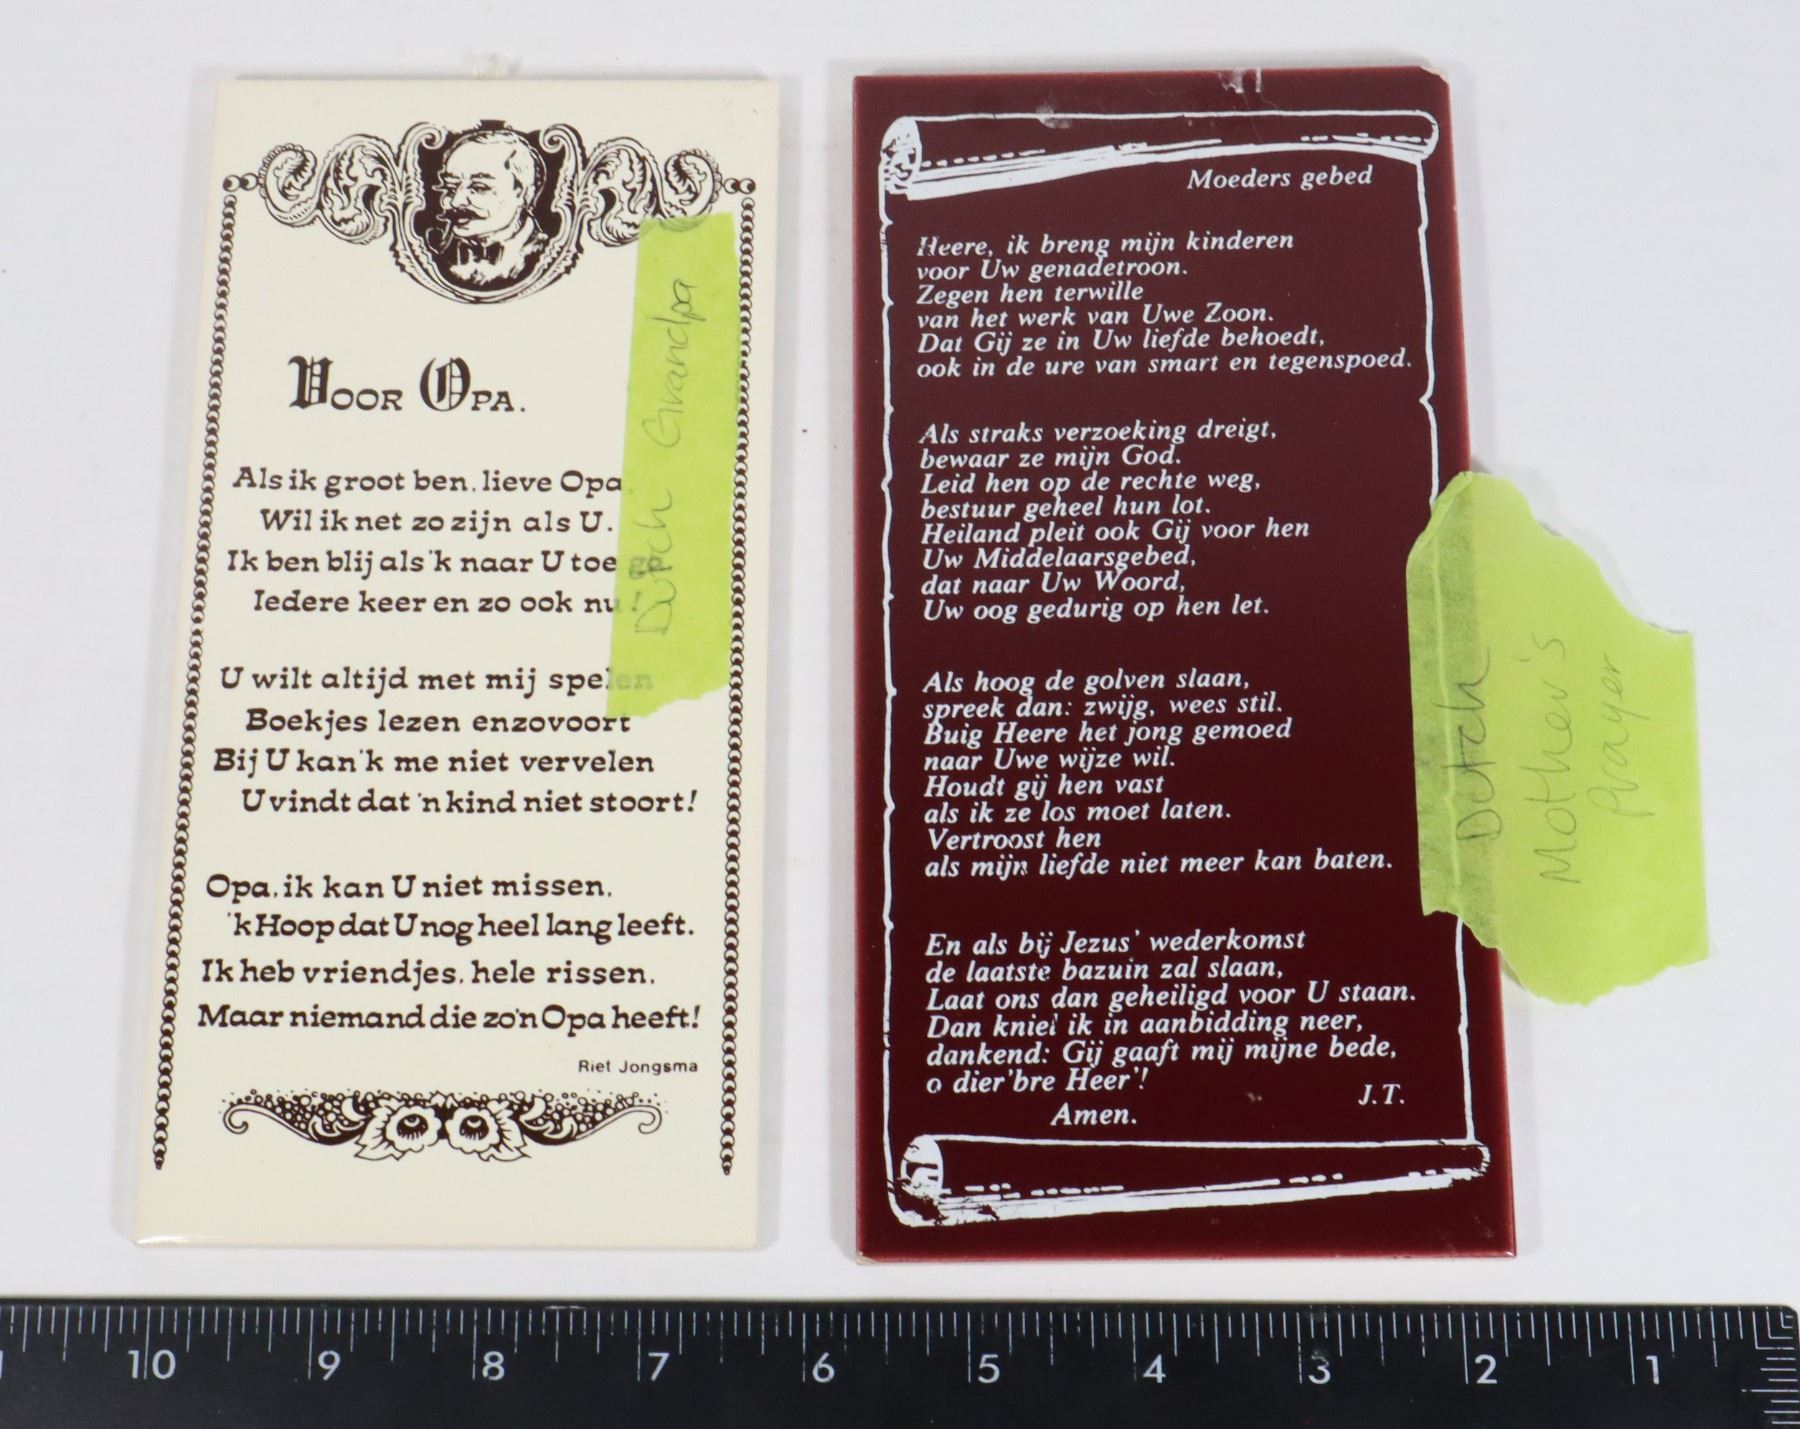 Voor Opa.
Als ik groot ben, lieve Opa,
Wil ik net zo zijn als U.
Ik ben blij als 'k naar U toe ga
Iedere keer en zo ook nu!
U wilt altijd met mij spelen
Boekjes lezen enzovoort
Bij U kan 'k me niet vervelen
U vindt dat 'n kind niet stoort!
Opa, ik kan U niet missen,
'k Hoop dat U nog heel lang leeft.
Ik heb vriendjes, hele rissen,
Maar niemand die zo'n Opa heeft!
Riet Jongsma
Dutch Grandpa
Moeders gebed
Heere, ik breng mijn kinderen
voor Uw genadetroon.
Zegen hen terwille
van het werk van Uwe Zoon.
Dat Gij ze in Uw liefde behoedt,
ook in de ure van smart en tegenspoed.
Als straks verzoeking dreigt,
bewaar ze mijn God.
Leid hen op de rechte weg,
bestuur geheel hun lot.
Heiland pleit ook Gij voor hen
Uw Middelaarsgebed,
dat naar Uw Woord,
Uw oog gedurig op hen let.
Als hoog de golven slaan,
spreek dan: zwijg, wees stil.
Buig Heere het jong gemoed
naar Uwe wijze wil.
Houdt gij hen vast
als ik ze los moet laten.
Vertroost hen
als mijn liefde niet meer kan baten.
En als bij Jezus' wederkomst
de laatste bazuin zal slaan,
Laat ons dan geheiligd voor U staan.
Dan kniel ik in aanbidding neer,
dankend: Gij gaaft mij mijne bede,
o dier'bre Heer'!
Amen.
J.T.
Dutch
Mother's
Prayer
10 9 8 7 6 5 4 3 2 1